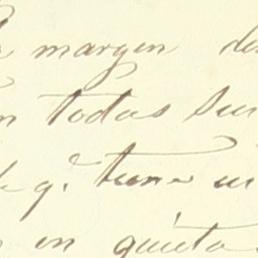 margen de
en todas sus
de q.e tiene un
en quieta